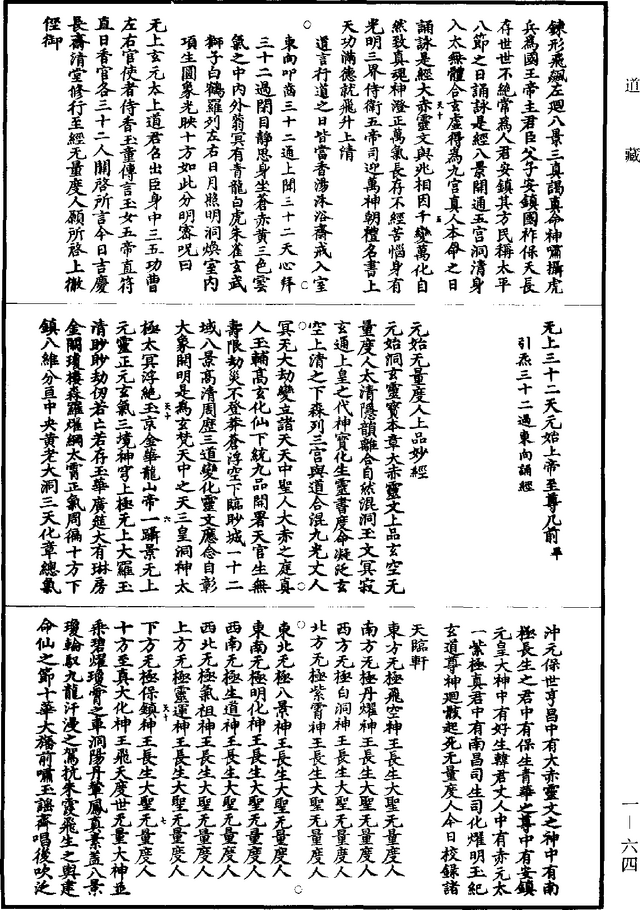 道藏
鍊形飛飆左迴八景三真謁真命神嘯攝虎
兵為國王帝主君臣父子安鎮國祚保天長
存世世不絕常為人君安鎮其方民稱太平
八節之日誦詠是經八景開通玉宮洞清身
入太無體合玄虛得為九宮真人本命之日
誦詠是經大赤靈文與兆相因千變萬化自
天十
五
然致真魂神澄正萬氣長存不經苦惱身有
光明三界侍衛五帝司迎萬神朝禮名書上
天功滿德就飛升上清
道言行道之日皆當香湯沐浴齋戒入室
東向叩齒三十二通上聞三十二天心拜
三十二過閉目靜思身坐蒼赤黃三色雲
氣之中內外蓊冥有青龍白虎朱雀玄武
獅子白鶴羅列左右日月照明洞煥室內
項生圓象光映十方如此分明密呪曰
无上玄元太上道君召出臣身中三五功曹
左右官使者侍香玉童傳言玉女五帝直符
直日香官各三十二人關啓所言今日吉慶
長齋清堂修行至經无量度人願所啓上徹
徑御
无上三十二天元始上帝至尊几前平
引炁三十二過東向誦經
元始无量度人上品妙經
元始洞玄靈寶本章大赤靈文上品玄空无
量度人太清隱韻離合自然混洞玉文冥寂
玄通上皇之代神寶化生靈書度命凝延玄
空上清之下森列三宮與道合混九光丈人
冥无大劫變立諸天天中聖人大赤之庭真
人玉輔高玄化仙下統九品開署天官生無
壽限劫災不登莽蒼浮空下臨眇城一十二
域八景高清周歷三道變化靈文應念自彰
大象開明是為玄梵天中之天三皇洞神太
極太冥浮絕玉京金華龍山帝一躡景无上
天十
六
元靈正元玄氣三境神穹上極元上大羅玉
清眇眇劫仞若亡若存玉華廣筵大有琳房
金闕瓊樓森羅耀網太霄正氣周徧十方下
鎮八維分亘中央黃老大洞三天化章總氣
沖元保世亨昌中有大赤靈文之神中有南
極長生之君中有保生青華之尊中有安鎮
元皇大神中有好生韓君丈人中有赤元太
一紫極真君中有南昌司生司化燿明玉紀
玄道尊神迴骸起死无量度人今日校錄諸
天臨軒
東方无極飛空神王長生大聖无量度人
南方无極丹燿神王長生大聖无量度人
西方无極白洞神王長生大聖无量度人
北方无極紫霄神王長生大聖无量度人
東北无極八景神王長生大聖无量度人
東南无極明化神王長生大聖无量度人
西南无極生道神王長生大聖无量度人
西北无極氣祖神王長生大聖无量度人
上方无極靈運神王長生大聖无量度人
下方无極保鎮神王長生大聖无量度人
天十
七
十方至真大化神王飛天度世无量大神並
乘碧燿瓊骨之車洞陽丹輦鳳真素蓋八景
瓊輪馭九龍汗漫之駕抗朱霞飛生之輿建
命仙之節十華大旛前嘯玉謠齊唱後吹泛
一－六四